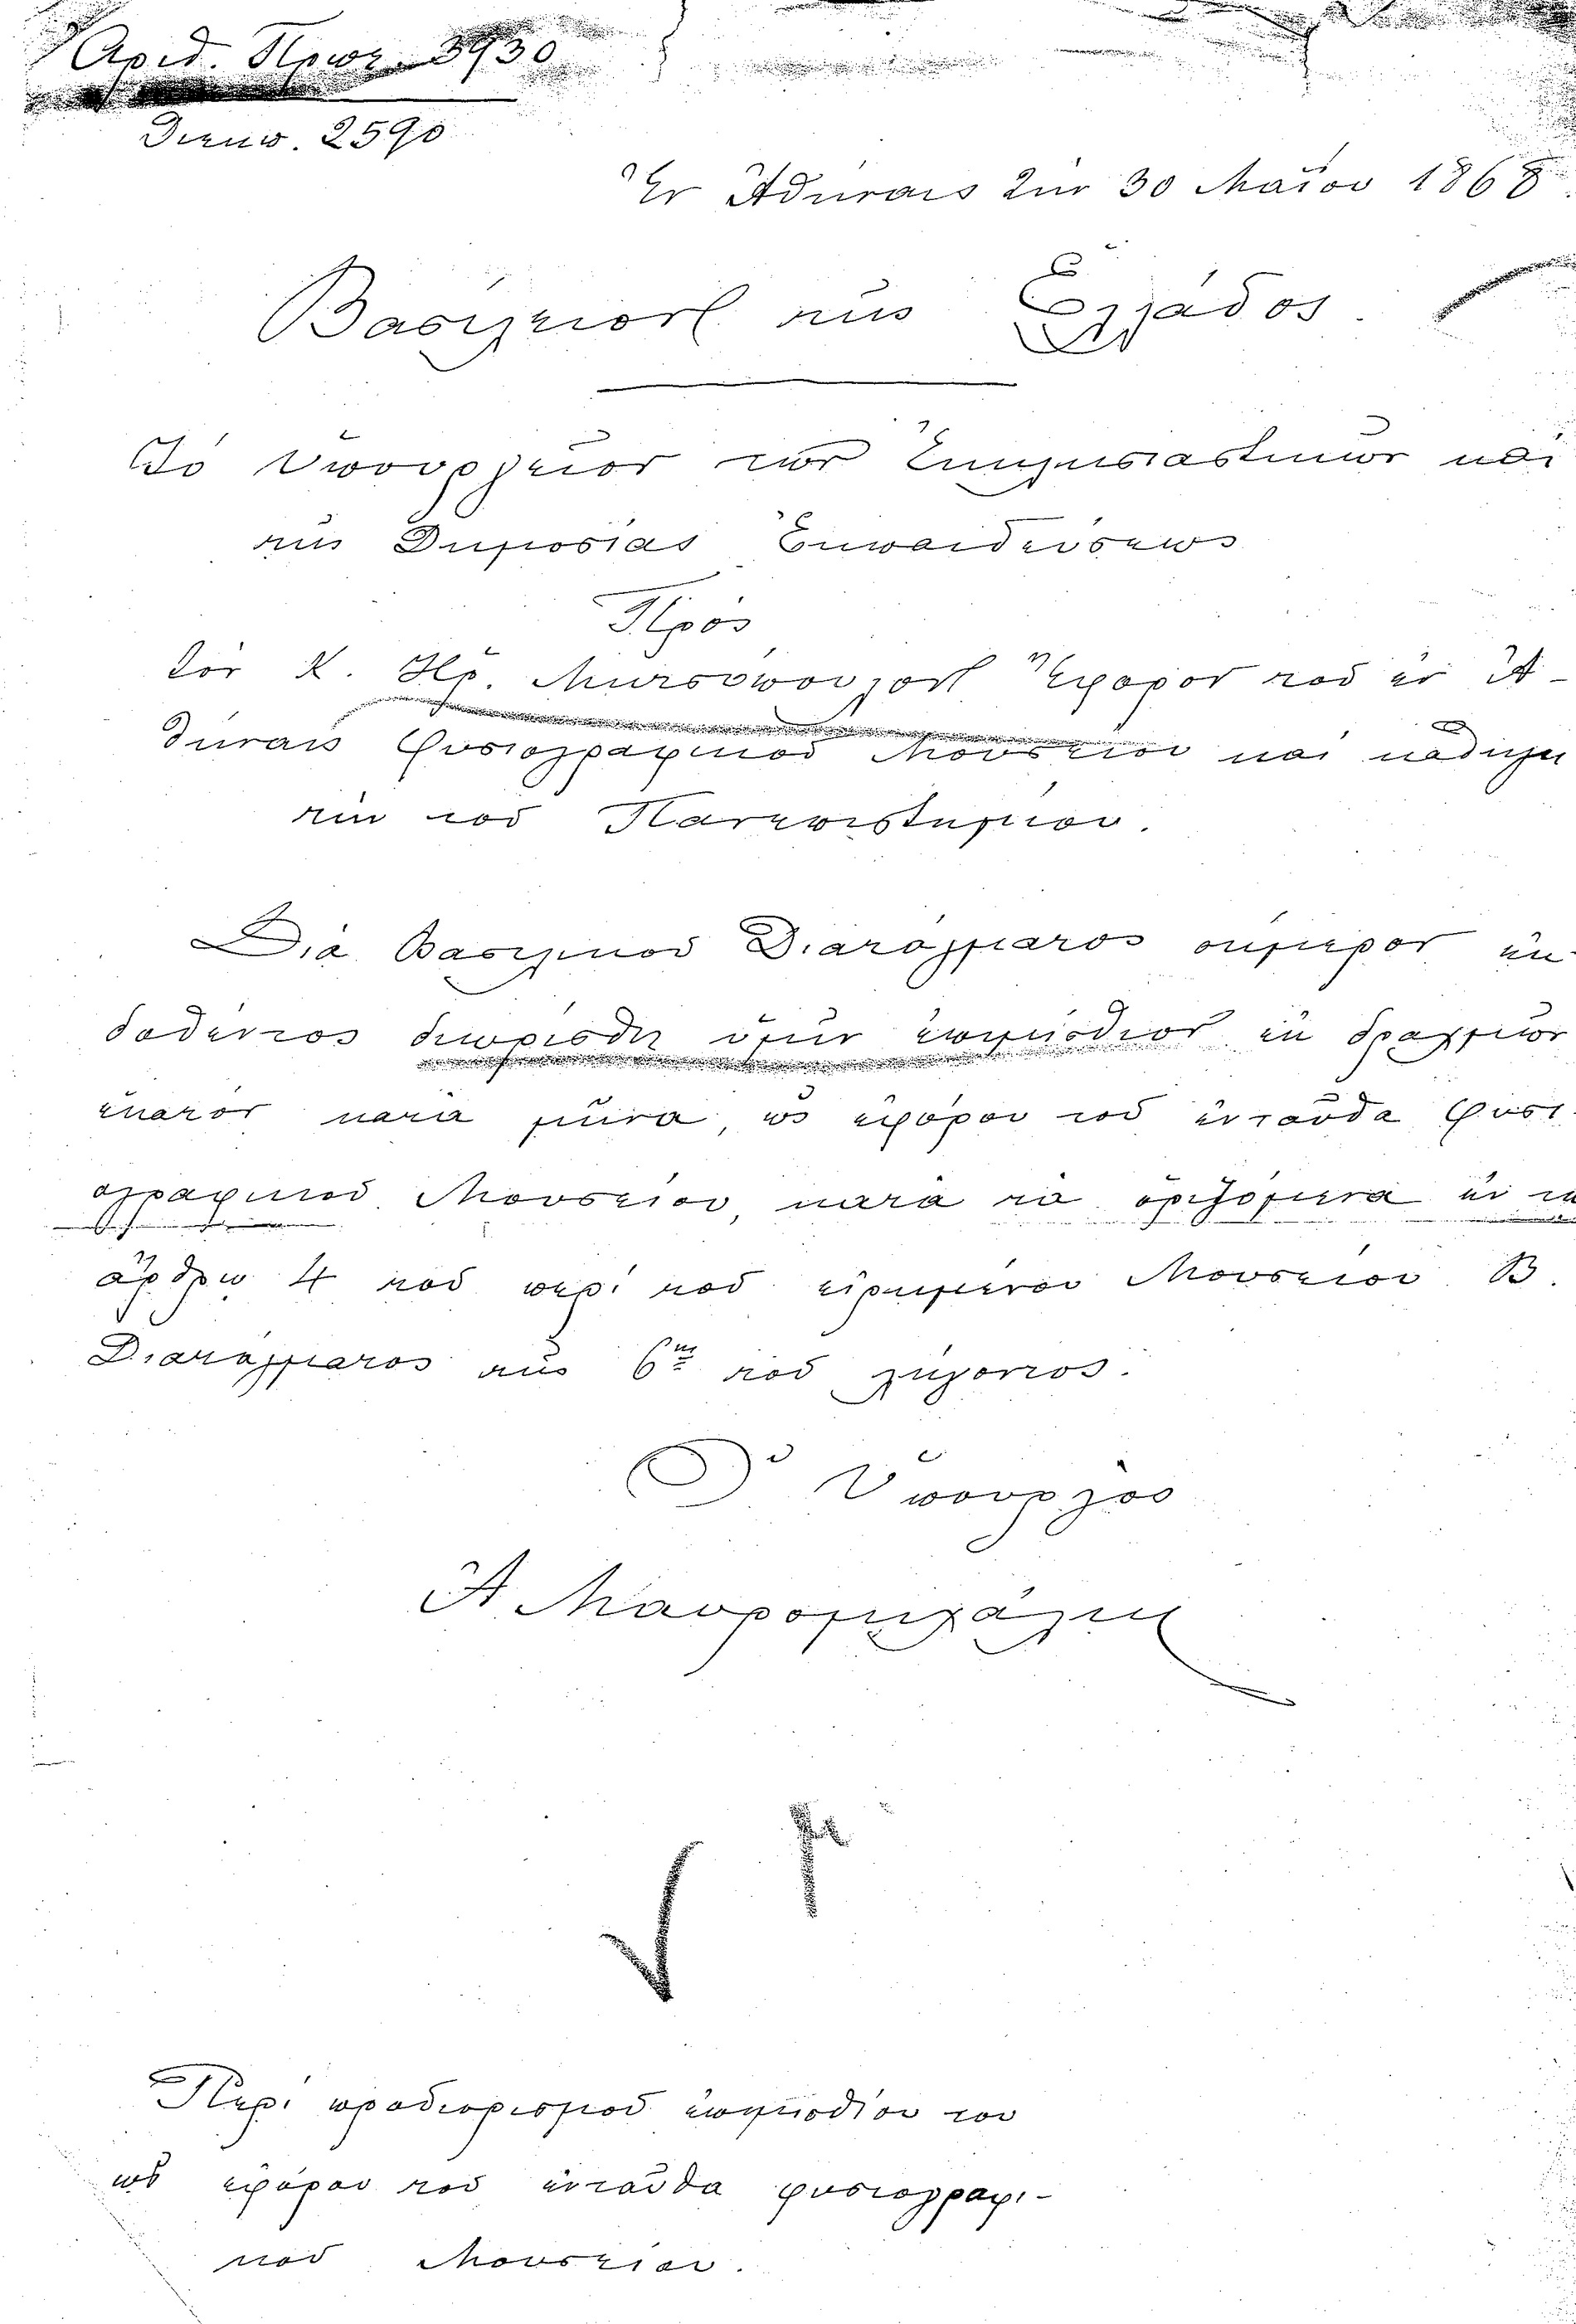 Αριθ. Πρωτ. 3930
Διεκπ. 2590
Ἐν Ἀθήναις τὴν 30 Μαΐου 1868
Βασίλειον τῆς Ἑλλάδος.
Τὸ Ὑπουργεῖον τῶν Ἐκκλησιαστικῶν καὶ
τῆς Δημοσίας Ἐκπαιδεύσεως
Πρὸς
τὸν Κ. Ἡρ. Μητσόπουλον Ἔφορον τοῦ ἐν Ἀ-
θήναις Φυσιογραφικοῦ Μουσείου καὶ καθηγη
τὴν τοῦ Πανεπιστημίου.
Διὰ Βασιλικοῦ Διατάγματος σήμερον ἐκ-
δοθέντος διωρίσθη ὑμῖν ἐπιμίσθιον ἐκ δραχμῶν
ἑκατὸν κατὰ μῆνα, ὡς ἐφόρου τοῦ ἐνταῦθα Φυσι-
ογραφικοῦ Μουσείου, κατὰ τὰ ὁριζόμενα ἐν τῷ
ἄρθρῳ 4 τοῦ περὶ τοῦ εἰρημένου Μουσείου Β.
Διατάγματος τῆς 6ης τοῦ λήγοντος.
Ὁ Ὑπουργὸς
Ἀ Μαυρομιχάλης
Περὶ προσδιορισμοῦ ἐπιμισθίου του
ὡς ἐφόρου τοῦ ἐνταῦθα φυσιογραφι-
κοῦ Μουσείου.